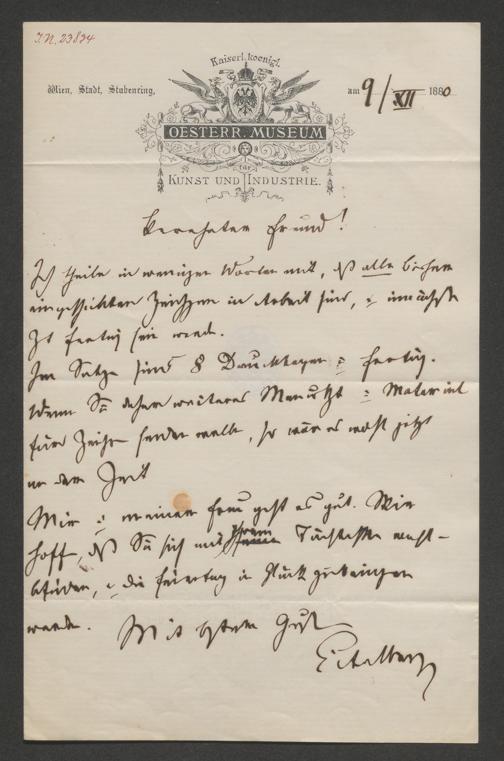 I.N. 23834
Kaiserl. koenigl.
Wien, Stadt, Stubenring, am 9/XII 1880
OESTERR. MUSEUM
für
KUNST UND INDUSTRIE.
Verehrter Freund!
Ich theile in wenigen Worten mit, daß alle bisher
eingeschickten Zeichgen in Arbeit sind, u
Zt fertig sein werd.
Im Satze sind 8 Druckbogen fertig.
Wenn Sie daher weiteres Manuskpt u Material
für Zeichg senden wollen, so wäre es wohl jetzt
an der Zeit
Mir u meiner Frau geht es gut. Wir
hoff, daß Sie sich mit Ihrem wohl-
befinden, u die Feiertag in Glück zubringen
werden. Mit bestem Gruß
Eitelberger